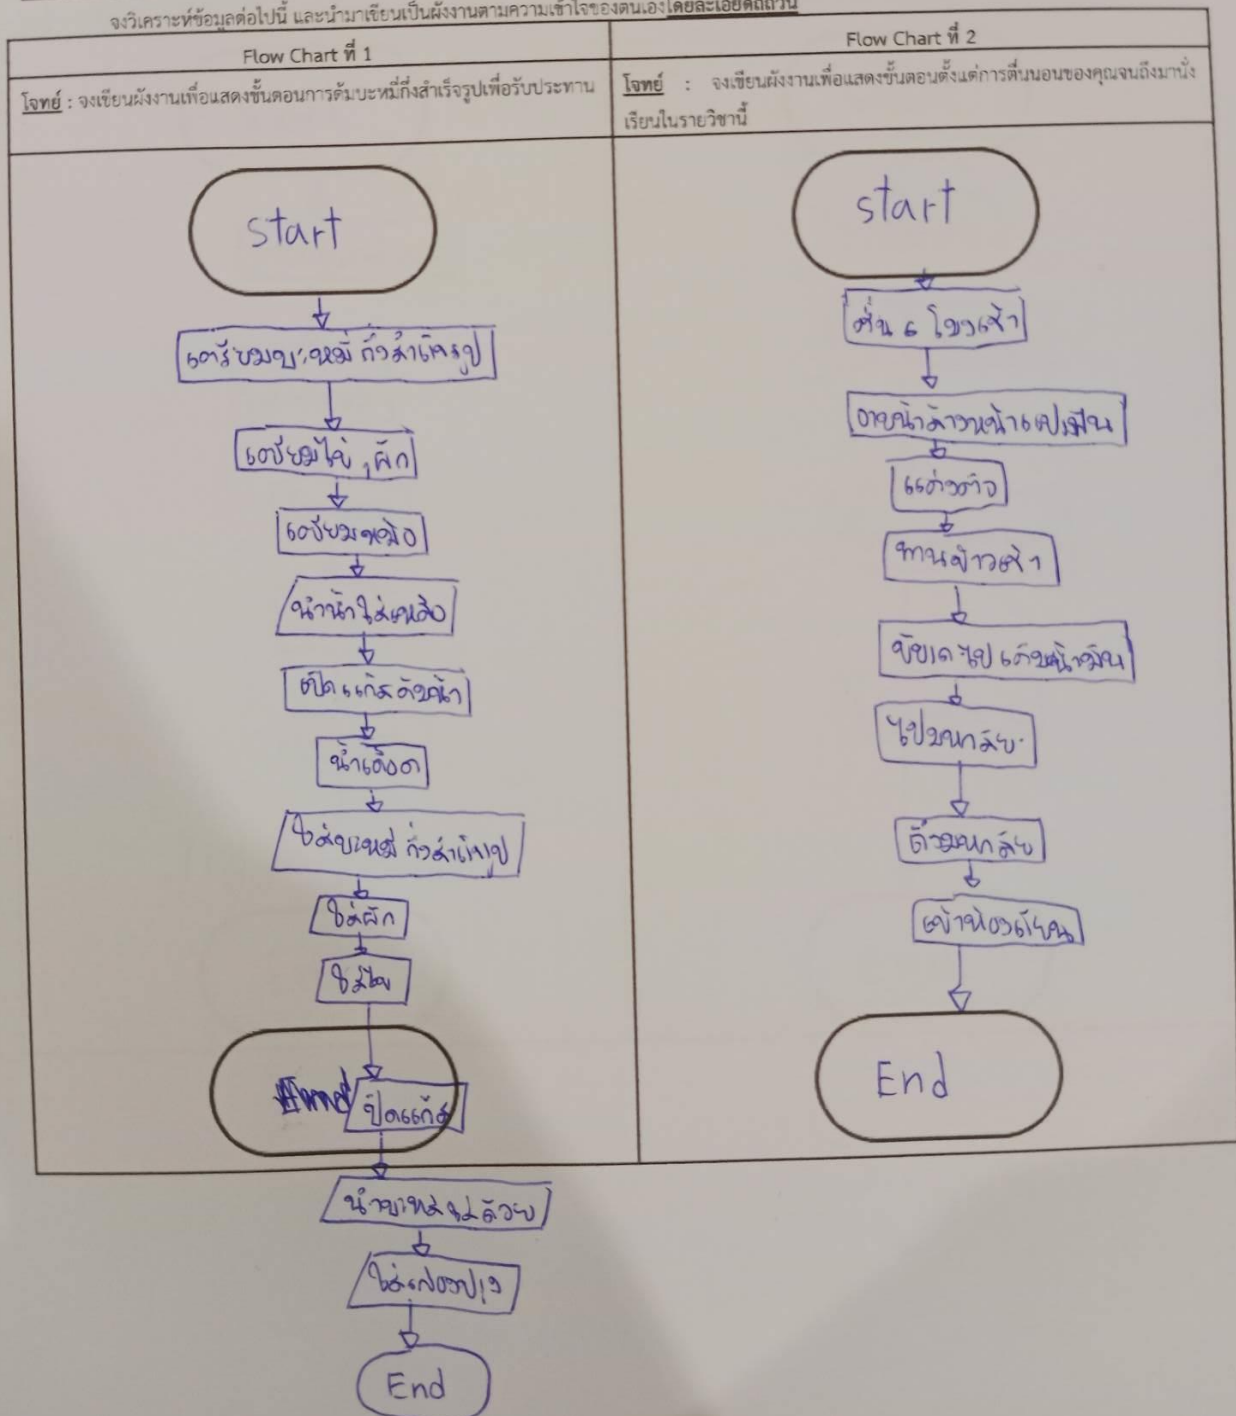 จงวิเคราะห์ข้อมูลต่อไปนี้ และนำมาเขียนเป็นผังงานตามความเข้าใจของตนเองโดยละเอียดถี่ถ้วน
Flow Chart ที่ 1
โจทย์ : จงเขียนผังงานเพื่อแสดงขั้นตอนการต้มบะหมี่กึ่งสำเร็จรูปเพื่อรับประทาน
start
เตรียมบะหมี่ กึ่งสำเร็จรูป
เตรียมไข่ , ผัก
เตรียมหม้อ
นำน้ำใส่หม้อ
เปิดแก๊สต้มน้ำ
น้ำเดือด
ใส่บะหมี่ กึ่งสำเร็จรูป
ใส่ผัก
ใส่ไข่
ปิดแก๊ส
นำบะหมี่ใส่ถ้วย
ใส่เครื่องปรุง
End
Flow Chart ที่ 2
โจทย์ : จงเขียนผังงานเพื่อแสดงขั้นตอนตั้งแต่การตื่นนอนของคุณจนถึงมานั่ง
เรียนในรายวิชานี้
start
ตื่น 6 โมงเช้า
อาบน้ำล้างหน้าแปรงฟัน
แต่งตัว
ทานข้าวเช้า
ขับรถไปเติมน้ำมัน
ไปมหาลัย
ถึงมหาลัย
เข้าห้องเรียน
End